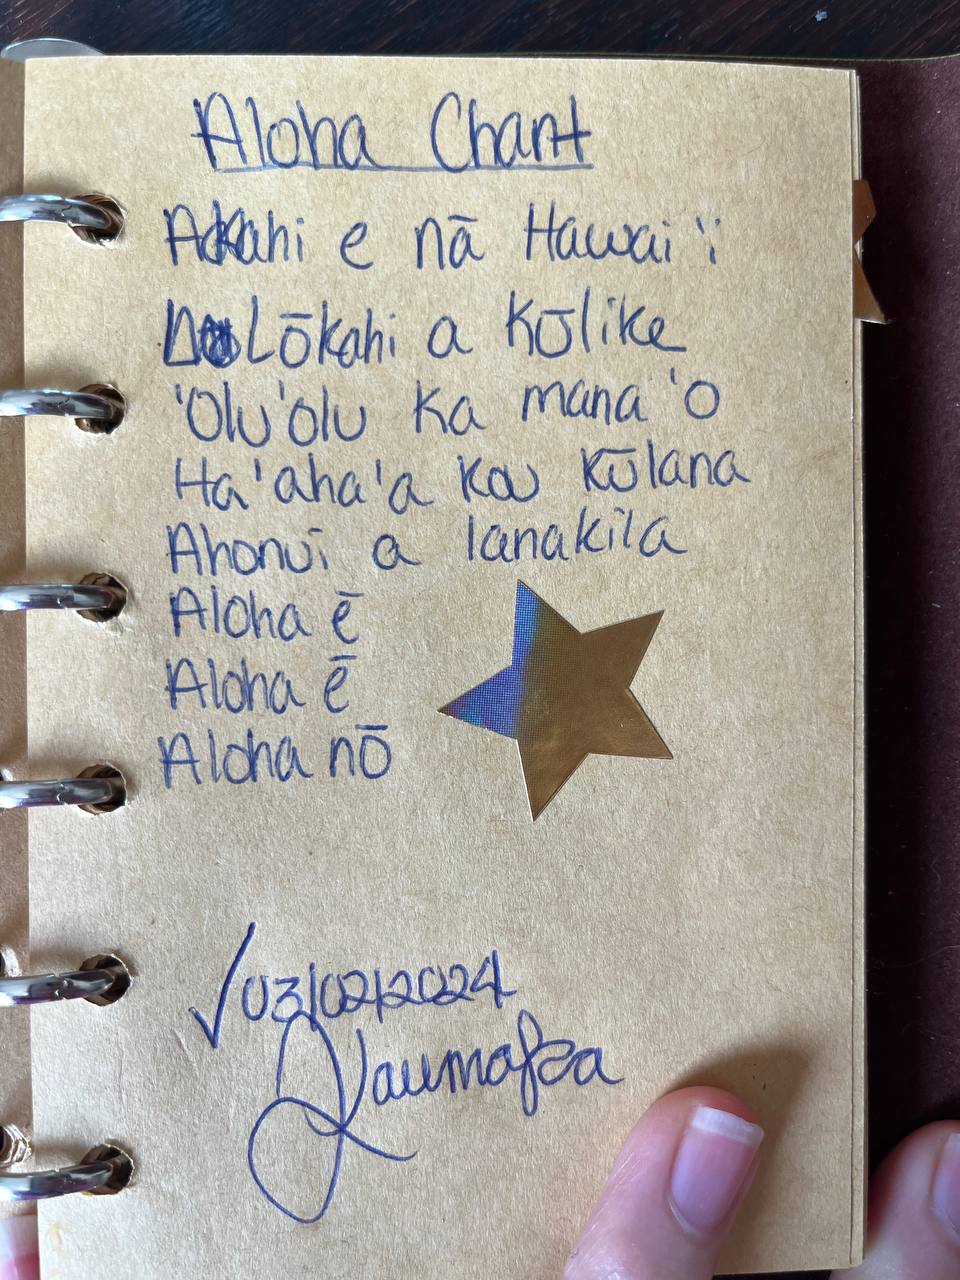 Aloha Chant
Akahi e nā Hawai'i
Lōkahi a Kūlike
'Olu'olu ka mana'o
Ha'aha'a kou Kūlana
Ahonui a lanakila
Aloha ē
Aloha ē
Aloha nō
✓03/02/2024